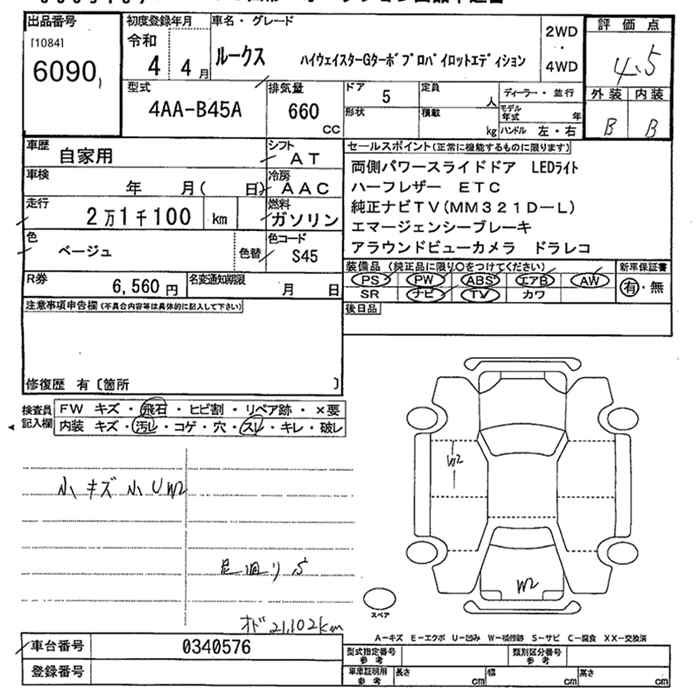 出品番号
[1084]
6090
初度登録年月
令和
4 4月
車名・グレード
ルークス ハイウェイスターGターボプロパイロットエディション
2WD
・
4WD
評価点
4.5
外装 内装
B B
型式
4AA-B45A
排気量
660
CC
ドア 5
形状
定員 人
積載 kg
ディーラー・並行
モデル年式 年
ハンドル 左・右
車歴 自家用
シフト AT
車検 年 月( 日)
冷房 AAC
走行 2万1千100 km
燃料 ガソリン
色 ベージュ
色替
色コード S45
R券 6,560円
名変通知期限 月 日
セールスポイント(正常に機能するものに限ります)
両側パワースライドドア LEDライト
ハーフレザー ETC
純正ナビTV(MM321D-L)
エマージェンシーブレーキ
アラウンドビューカメラ ドラレコ
装備品(純正品に限り○をつけてください)
PS PW ABS エアB AW
SR ナビ TV カワ
新車保証書
有・無
後日品
注意事項申告欄(不具合内容等は具体的に記入して下さい)
修復歴 有〔箇所 〕
検査員記入欄
FW キズ・飛石・ヒビ割・リペア跡・×要
内装 キズ・汚レ・コゲ・穴・スレ・キレ・破レ
小キズ 小U W2
足廻りS
オド 21,102km
W2
W2
スペア
A-キズ E-エクボ U-凹み W-補修跡 S-サビ C-腐食 XX-交換済
車台番号 0340576
登録番号
型式指定番号 参考
類別区分番号 参考
車庫証明用 参考
長さ cm
幅 cm
高さ cm